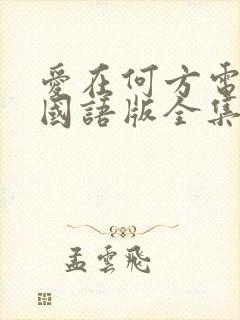 愛在何方電
國語版全集
孟雲飛